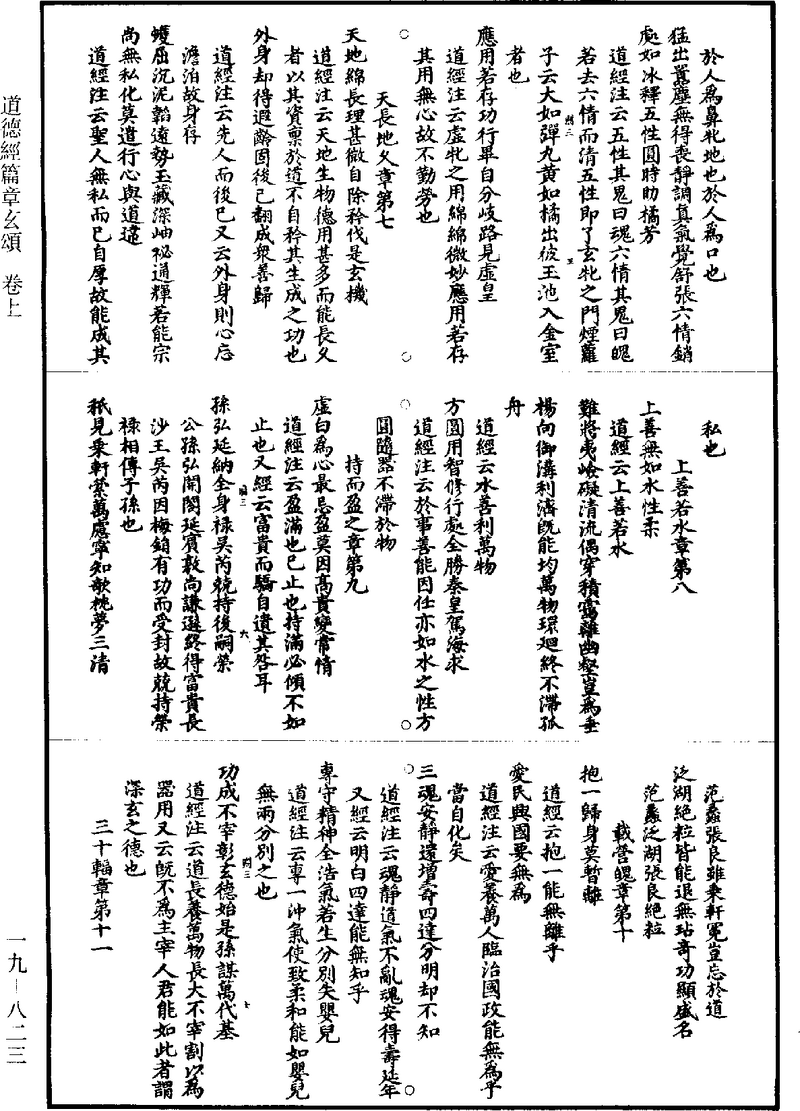 道德經篇章玄頌　卷上
於人為鼻牝地也於人為口也
猛出囂塵無得喪靜調真氣覺舒張六情銷
處如冰釋五性圓時助橘芳
道經注云五性其鬼曰魂六情其鬼曰魄
若去六情而清五性即了玄牝之門煙蘿
子云大如彈丸黃如橘出彼玉池入金室
者也
應用若存功行畢自分岐路見虛皇
道經注云虛牝之用綿綿微妙應用若存
其用無心故不勤勞也
天長地久章第七
天地綿長理甚微自除矜伐是玄機
道經注云天地生物德用甚多而能長久
者以其資稟於道不自矜其生成之功也
外身却得遐齡固後己翻成衆善歸
道經注云先人而後己又云外身則心忘
澹泊故身存
蠖屈沉泥韜遠勢玉藏深岫祕通輝若能宗
尚無私化莫遣行心與道違
道經注云聖人無私而已自厚故能成其
私也
上善若水章第八
上善無如水性柔
道經云上善若水
難將夷嶮礙清流偶穿積霤離幽壑豈為垂
楊向御溝利濟既能均萬物環迴終不滯孤
舟
道經云水善利萬物
方圓用智修行處全勝秦皇駕海求
道經注云於事善能因任亦如水之性方
圓隨器不滯於物
持而盈之章第九
虛白為心最忌盈莫因高貴變常情
道經注云盈滿也已止也持滿必傾不如
止也又經云富貴而驕自遺其咎耳
孫弘延納全身祿吳芮兢持後嗣榮
公孫弘開閣延賓敦尚謙遜終得富貴長
沙王吳芮因梅鋗有功而受封故兢持榮
祿相傳子孫也
秖見乘軒縈萬慮寧知欹枕夢三清
范蠡張良雖乘軒冕豈忘於道
泛湖絕粒皆能退無玷奇功顯盛名
范蠡泛湖張良絕粒
載營魄章第十
抱一歸身莫暫離
道經云抱一能無離乎
愛民興國要無為
道經注云愛養萬人臨治國政能無為乎
當自化矣
三魂安靜還增壽四達分明却不知
道經注云魂靜道氣不亂魂安得壽延年
又經云明白四達能無知乎
專守精神全浩氣若生分別失嬰兒
道經注云專一沖氣使致柔和能如嬰兒
無兩分別之也
功成不宰彰玄德始是孫謀萬代基
道經注云道長養萬物長大不宰割以為
器用又云既不為主宰人君能如此者謂
深玄之德也
三十輻章第十一
一九－八二三